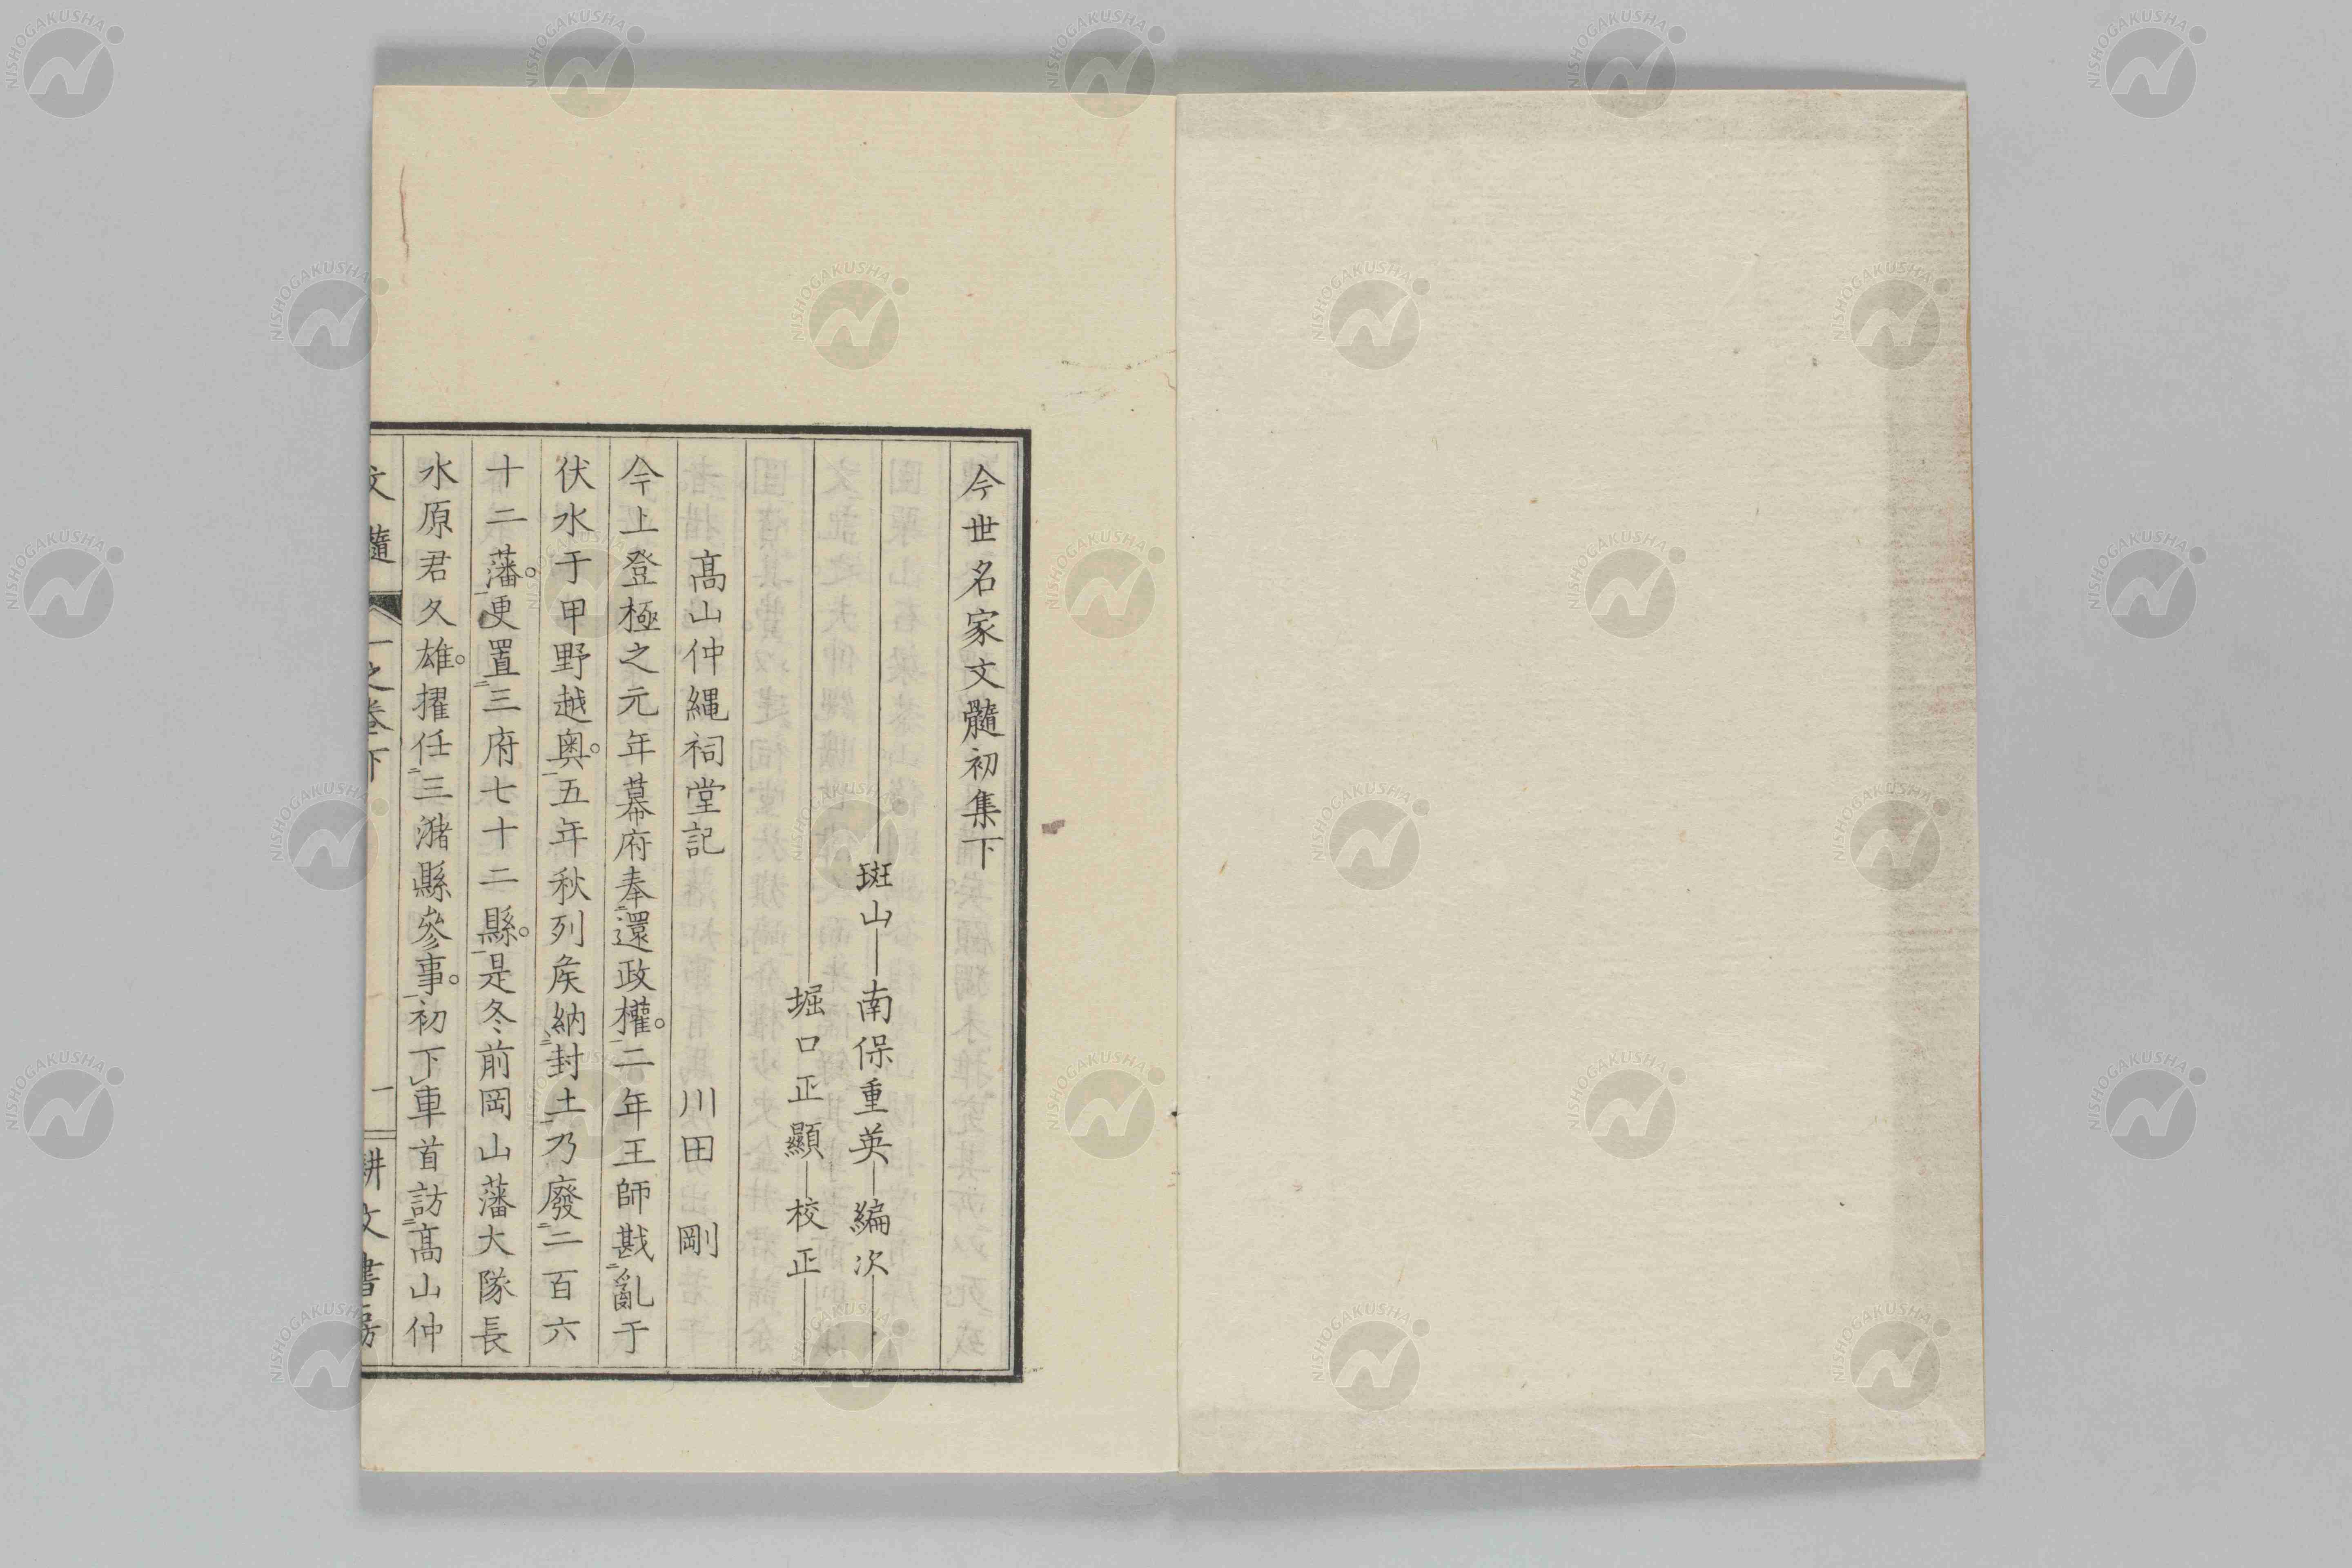 今世名家文髓初集下
斑山 南保重英 編次
堀口正顯 校正
髙山仲縄祠堂記 川田 剛
今上登極之元年幕府奉二還政權一。二年王師戡二亂于
伏水于甲野越奥一。五年秋列矦納二封土一乃廢二二百六
十二藩一。更置二三府七十二縣一。是冬前岡山藩大隊長
水原君久雄。擢任二三潴縣參事一。初下レ車首訪二髙山仲
文髓 一之卷下 一 耕文書房
NISHOGAKUSHA